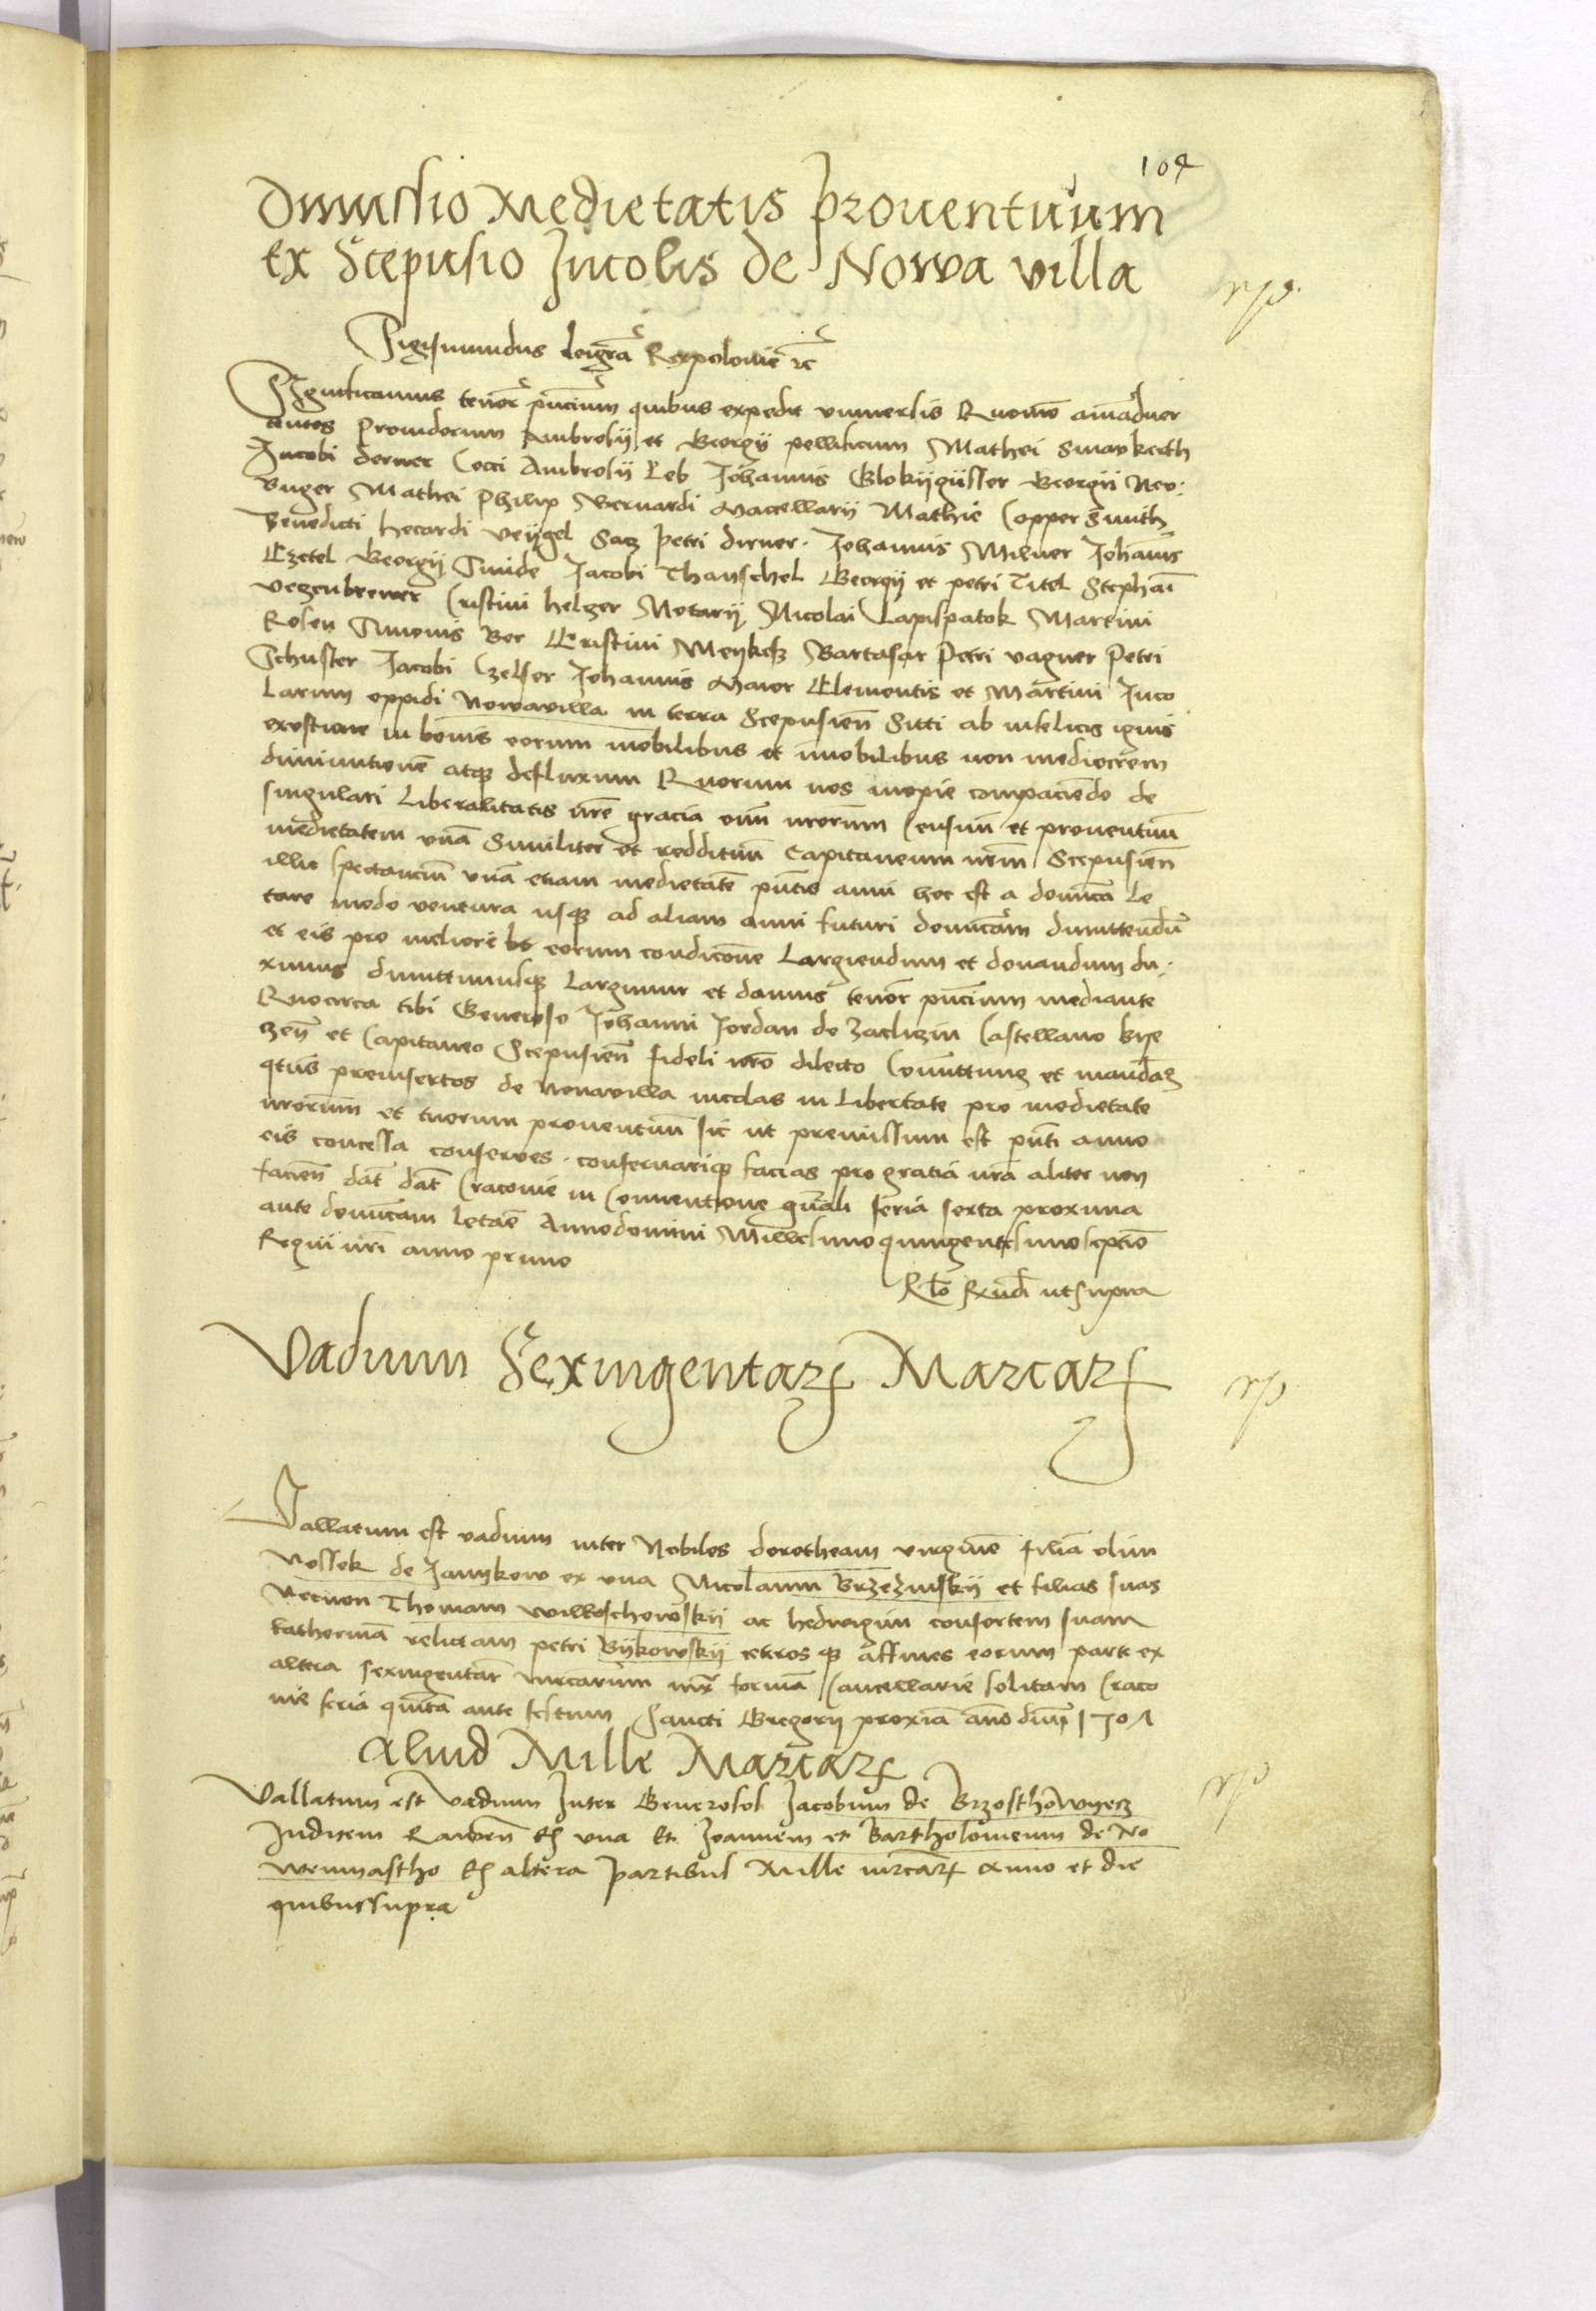 104
Dimissio Medietatis proventuum
Ex Scepusio Incolis de Nowa villa
rp
Sigismundus dei gra Rex polonie etc
Significamus tenore pntium quibus expedit universis Quomo animadver
tentes Providorum Ambrosÿ et Georgÿ pellificum Mathei Smavkerth
Jacobi derner Cocci Ambrosÿ Leb Johannis Glokÿgüsser Georgii Neo:
unger Mathei Philip Bernardi Macellarÿ Mathie Coppersmith
Benedicti hecardi Veÿgel Sacz petri dirner. Johannis Milner Johanis
Eczetel Georgÿ Smide Jacobi Thanschel Georgÿ et petri Titel Stephani
vegenbrener Cristini helger Notarÿ Nicolai Lapispatok Martini
Rosen Simonis Ber Cristini Meÿkisz Bartasar Petri vagner Petri
Schuster Jacobi Czelser Johannis Maior Clementis et Martini Inco
larum oppidi Nowavilla in terra Scepusien Sitti ab infelicis ignis
exustione in bonis eorum mobilibus et imobilibus non mediocrem
diminutionem atque defluxum Quorum nos inopie compaciendo de
singulari Liberalitatis nre gracia oim nrorum Censuum et proventuum
medietatem unam Similiter et reddituum Capitaneum nrm Scepusien
illic spectancium unam etiam medietatem pntis anni hoc est a dominca Le
tare modo ventura usque ad aliam anni futuri dominicam dimittendum
et eis pro meliore eorum condicone Largiendum et donandum du:
ximus dimittimusque Largimur et damus tenore pntium mediante
Quocirca tibi Generoso Johanni Jordan de Zaclizin Castellano bye
zen et Capitaneo Scepusien fideli nro dilecto Comittimus et mandams
qtus preinsertos de Nowavilla incolas in Libertate pro medietate
nrorum et tuorum proventuum sic ut premissum est pnti anno
eis concessa conserves. conservarique facias pro gratia nra aliter non
facien dat dat Cracovie in Conventione gnali feria sexta proxima
ante dominicam letare Anno domini Millesimo quingentesimo septimo
Regni nri anno primo
Rlo Rndi ut supra
Vadium Sexingentarum Marcarum
rp
Vallatum est vadium inter Nobiles dorotheam virginem filiam olim
Vossek de Janykow ex una Nicolaum Brzezinskÿ et filias suas
Necnon Thomam Willoschowskÿ ac hedwigim consortem suam
katherinam relictam petri Bÿkowskÿ ceteros que affines eorum parte ex
altera sexingentarum mrcarum iux formam Cancellarie solitam Craco
vie feria quinta ante festum Sancti Gregory proxima ano dni 1507
Aliud Mille Marcarum
rp
Vallatum est Vadium Inter Generosos Jacobum de Brzosthowyecz
Judicem Raven Ex una Et Joannem et Bartholomeum de No
wemiastho Ex altera partibus Mille mrcarum Anno et die
quibus supra